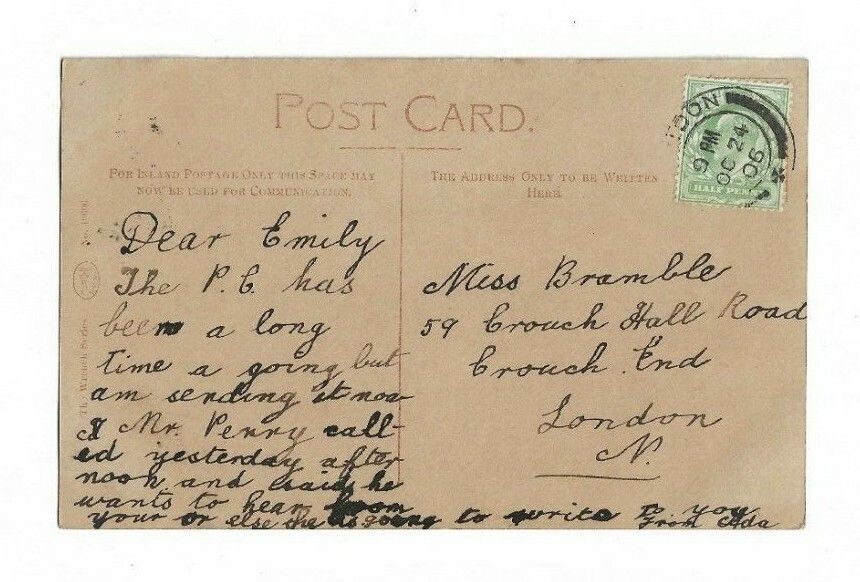 POST CARD.
FOR INLAND POSTAGE ONLY THIS SPACE MAY
NOW BE USED FOR COMMUNICATION.
THE ADDRESS ONLY TO BE WRITTEN
HERE.
DON
9 PM
OC 24
06
HALF PENNY
Dear Emily
The P.C. has
been a long
time a going but
am sending it now
Mr. Penny call-
ed yesterday after
noon and said he
wants to hear from
your or else he is going to write to you
From Ada
Miss Bramble
59 Crouch Hall Road
Crouch End
London
N.
The Wrench Series